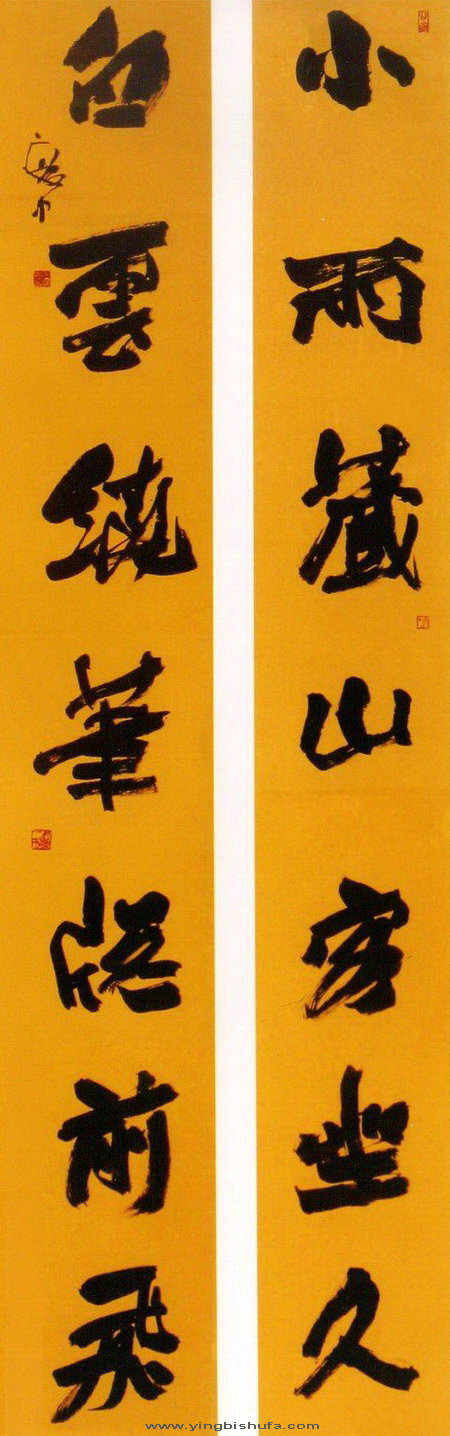 小雨藏山客坐久
白雲繞筆牕前飛
www.yingbishufa.com